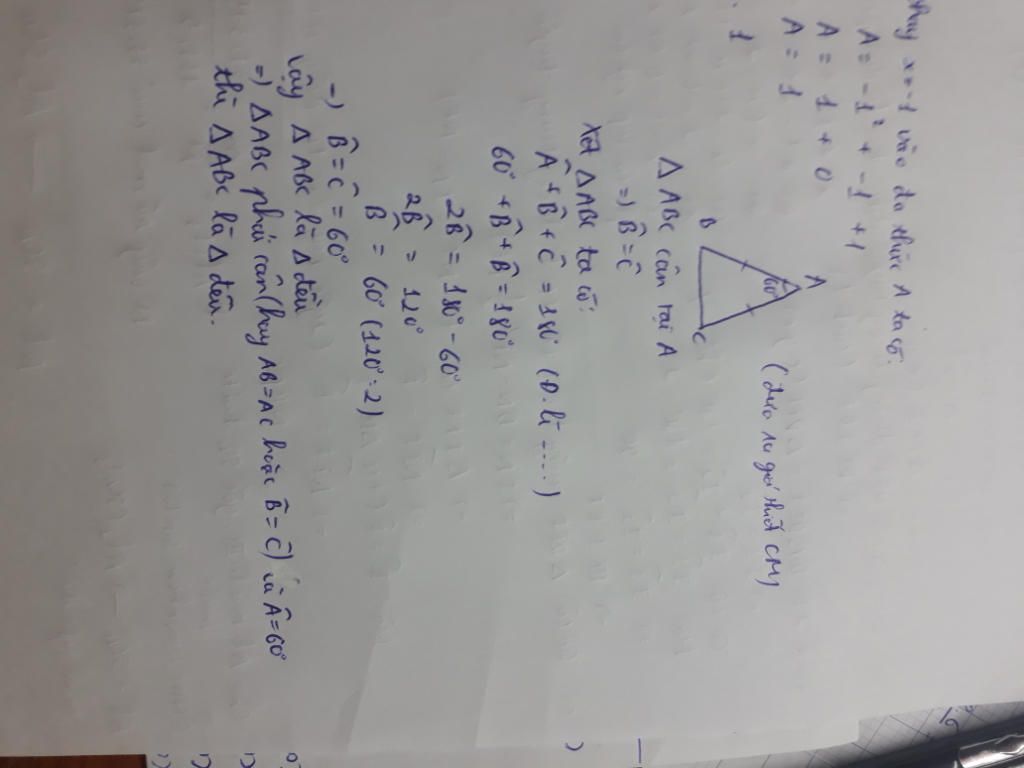 Thay x = -1 vào đa thức A ta có:
A = -1² + -1 + 1
A = 1 + 0
A = 1
1
A
60°
B
C
(Dựa giả thiết CM)
Δ ABC cân tại A
=) B̂ = Ĉ
Xét Δ ABC ta có:
Â + B̂ + Ĉ = 180° (Đ. lí ....)
60° + B̂ + B̂ = 180°
2B̂ = 180° - 60°
2B̂ = 120°
B̂ = 60° (120° : 2)
=) B̂ = Ĉ = 60°
Vậy Δ ABC là Δ đều
=) Δ ABC phải cân (hay AB = AC hoặc B̂ = Ĉ) và Â = 60°
thì Δ ABC là Δ đều.